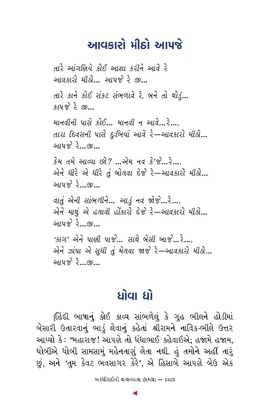 આવકારો મીઠો આપજે
તારે આંગણિયે કોઈ આશા કરીને આવે રે
આવકારો મીઠો... આપજે રે જી...
તારે કાને કોઈ સંકટ સંભળાવે રે, બને તો થોડું...
કાપજે રે જી...
માનવીની પાસે કોઈ... માનવી ન આવે...રે....
તારા દિવસની પાસે દુઃખિયાં આવે રે—આવકારો મીઠો...
આપજે રે...જી...
કેમ તમે આવ્યા છો ? ...એમ નવ કે'જે...રે....
એને ધીરે એ ધીરે તું બોલવા દેજે રે—આવકારો મીઠો...
આપજે રે...જી...
વાતું એની સાંભળીને... આડું નવ જોજે...રે....
એને માથું એ હલાવી હોંકારો દેજે રે—આવકારો મીઠો...
આપજે રે...જી...
'કાગ' એને પાણી પાજે... સાથે બેસી ખાજે...રે....
એને ઝાંપા એ સુધી તું મેલવા જાજે રે—આવકારો મીઠો...
આપજે રે...જી...
ધોવા દ્યો
(હિંદી ભાષાનું કોઈ કાવ્ય સાંભળેલું કે ગુહ ભીલને હોડીમાં
બેસારી ઉતારવાનું ભાડું લેવાનું કહેતાં શ્રીરામને નાવિક-ભીલે ઉત્તર
આપ્યો કે : "મહારાજ! આપણે તો ધંધાભાઈ કહેવાઈએ; હજામે હજામ,
ધોબીએ ધોબી સામસામું મહેનતાણું લેતા નથી. હું તમોને અહીં તારું
છું, અને 'તુમ કેવટ ભવસાગર કેરે', એ હિસાબે આપણે બેઉ એક